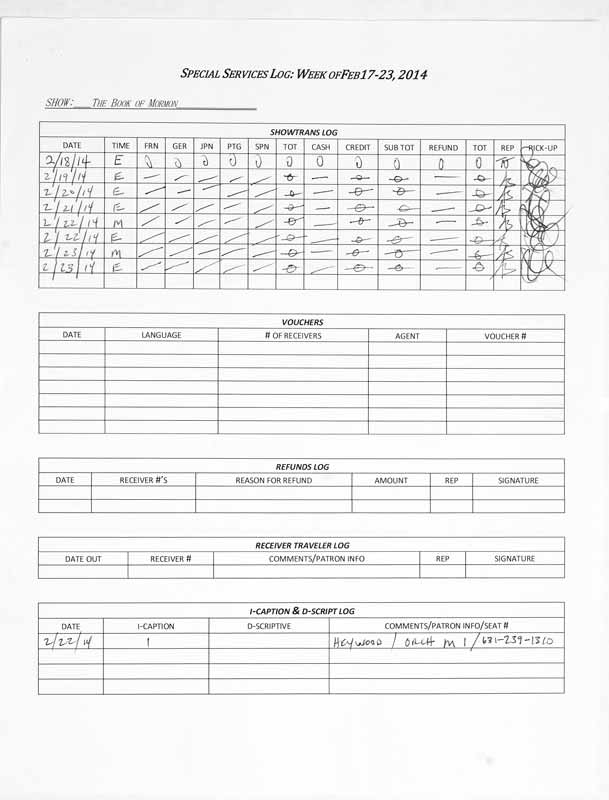 SPECIAL SERVICES LOG: WEEK OFFEB17-23, 2014
SHOW: THE BOOK OF MORMON
SHOWTRANS LOG
DATE TIME FRN GER JPN PTG SPN TOT CASH CREDIT SUB TOT REFUND TOT REP PICK-UP
2/18/14 E 0 0 0 0 0 0 0 0 0 0 0
2/19/14 E — — — — — 0 — 0 0 — 0
2/20/14 E — — — — — 0 — 0 0 — 0
2/21/14 E — — — — — 0 — 0 0 — 0
2/22/14 M — — — — — 0 — 0 0 — 0
2/22/14 E — — — — — 0 — 0 0 — 0
2/23/14 M — — — — — 0 — 0 0 — 0
2/23/14 E — — — — — 0 — 0 0 — 0
VOUCHERS
DATE LANGUAGE # OF RECEIVERS AGENT VOUCHER #
REFUNDS LOG
DATE RECEIVER #'S REASON FOR REFUND AMOUNT REP SIGNATURE
RECEIVER TRAVELER LOG
DATE OUT RECEIVER # COMMENTS/PATRON INFO REP SIGNATURE
I-CAPTION & D-SCRIPT LOG
DATE I-CAPTION D-SCRIPTIVE COMMENTS/PATRON INFO/SEAT #
2/22/14 1 HEYWOOD / ORCH M 1 / 631-239-1310